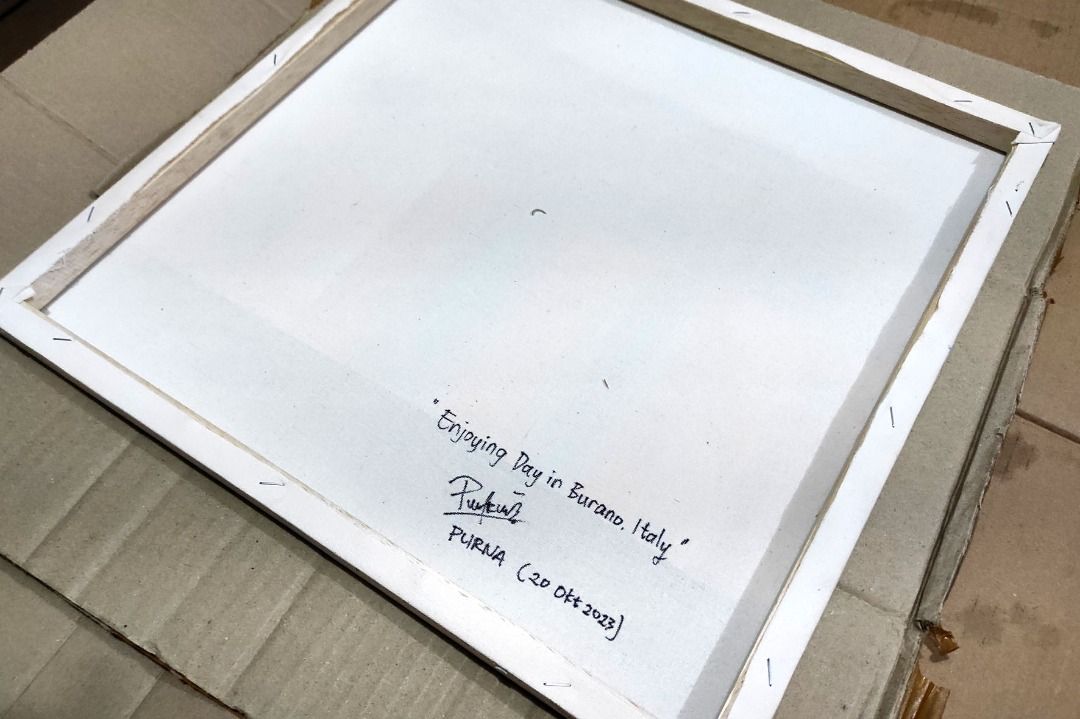 "Enjoying Day in Burano, Italy"
PURNA (20 Okt 2023)